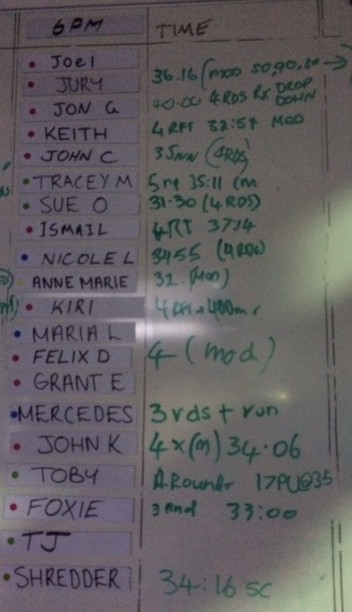 6PM TIME
Joel
JURY 36.16 (mod 50,90,30 →)
JON G 40.00 4RDS RX DROP DOWN
KEITH 4 RFT 32:57 MOD
JOHN C (4RDS)
TRACEY M 35:11 (m
SUE O 31.30 (4 RDS)
ISMAIL 4RT 37:14
NICOLE L 3455
ANNE MARIE 32.
KIRI
MARIA L
FELIX D 4 (mod)
GRANT E
MERCEDES 3 rds + run
JOHN K 4 x (m) 34.06
TOBY 17PU@35
FOXIE 33:00
TJ
SHREDDER 34:16 SC